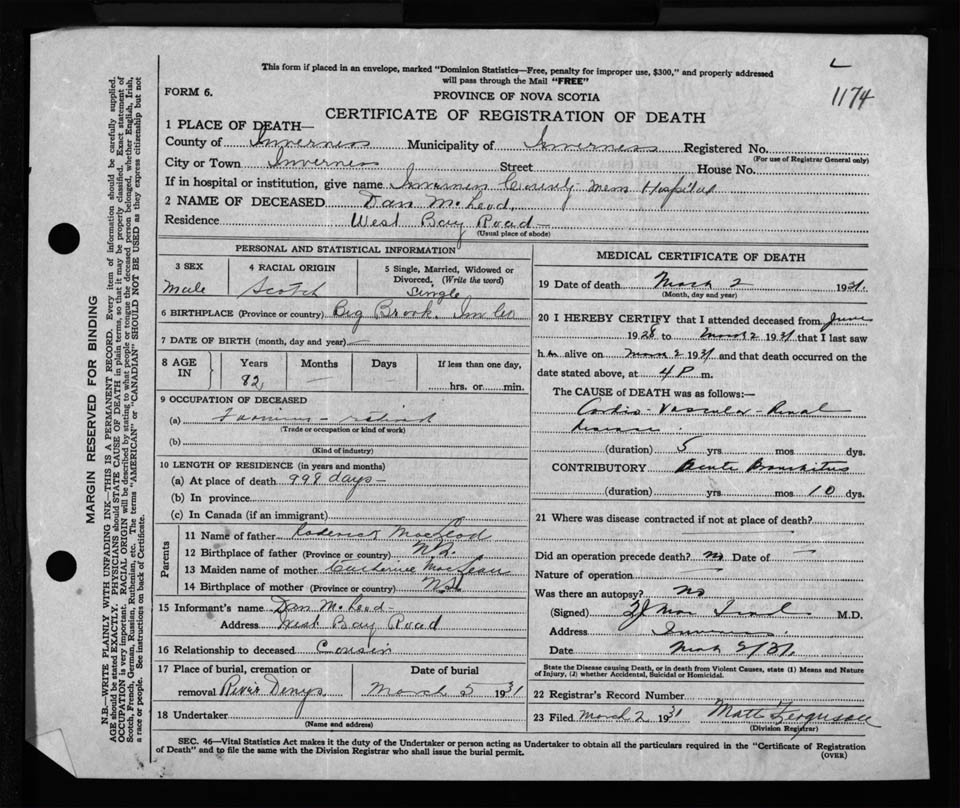 This form if placed in an envelope, marked "Dominion Statistics—Free, penalty for improper use, $300," and properly addressed
will pass through the Mail "FREE"
1174
FORM 6.
PROVINCE OF NOVA SCOTIA
CERTIFICATE OF REGISTRATION OF DEATH
1 PLACE OF DEATH—
County of Inverness Municipality of Inverness Registered No.
(For use of Registrar General only)
City or Town Inverness Street House No.
If in hospital or institution, give name Inverness County Mem Hospital
2 NAME OF DECEASED Dan McLeod
Residence West Bay Road
(Usual place of abode)
PERSONAL AND STATISTICAL INFORMATION
3 SEX
male
4 RACIAL ORIGIN
Scotch
5 Single, Married, Widowed or
Divorced. (Write the word)
Single
6 BIRTHPLACE (Province or country) Big Brook. Inv Co
7 DATE OF BIRTH (month, day and year) —
8 AGE
IN
Years
82
Months
—
Days
—
If less than one day,
hrs. or min.
9 OCCUPATION OF DECEASED
(a) Farming - retired
(Trade or occupation or kind of work)
(b)
(Kind of industry)
10 LENGTH OF RESIDENCE (in years and months)
(a) At place of death 998 days —
(b) In province
(c) In Canada (if an immigrant)
Parents
11 Name of father Roderick MacLeod
12 Birthplace of father (Province or country) N.S.
13 Maiden name of mother Catherine MacLean
14 Birthplace of mother (Province or country) N.S.
15 Informant's name Dan McLeod —
Address West Bay Road
16 Relationship to deceased Cousin
17 Place of burial, cremation or
removal River Denys
Date of burial
March 5 1931
18 Undertaker
(Name and address)
MEDICAL CERTIFICATE OF DEATH
19 Date of death March 2 1931.
(Month, day and year)
20 I HEREBY CERTIFY that I attended deceased from June
1928 to March 2 1931 that I last saw
h im alive on March 2 1931 and that death occurred on the
date stated above, at 4 P m.
The CAUSE OF DEATH was as follows:—
Cardio-Vascular-Renal
disease.
(duration) 5 yrs. mos. dys.
CONTRIBUTORY Acute Bronchitis
(duration) yrs. mos 10 dys.
21 Where was disease contracted if not at place of death?
—
Did an operation precede death? no Date of —
Nature of operation —
Was there an autopsy? No
(Signed) M.D.
Address Inverness.
Date March 2/31.
State the Disease causing Death, or in death from Violent Causes, state (1) Means and Nature
of Injury, (2) whether Accidental, Suicidal or Homicidal.
22 Registrar's Record Number
23 Filed March 2 1931 Matt Ferguson
(Division Registrar)
SEC. 46—Vital Statistics Act makes it the duty of the Undertaker or person acting as Undertaker to obtain all the particulars required in the "Certificate of Registration
of Death" and to file the same with the Division Registrar who shall issue the burial permit.
(OVER)
MARGIN RESERVED FOR BINDING
N.B.—WRITE PLAINLY WITH UNFADING INK—THIS IS A PERMANENT RECORD. Every item of information should be carefully supplied.
AGE should be stated EXACTLY. PHYSICIANS should STATE CAUSE OF DEATH in plain terms, so that it may be properly classified. Exact statement of
OCCUPATION is very important. RACIAL ORIGIN will be described by stating to what people or tongue the deceased person belonged, whether English, Irish,
Scotch, French, German, Russian, Ruthenian, etc. The terms "AMERICAN" or "CANADIAN" SHOULD NOT BE USED as they express citizenship but not
a race or people. See instructions on back of Certificate.